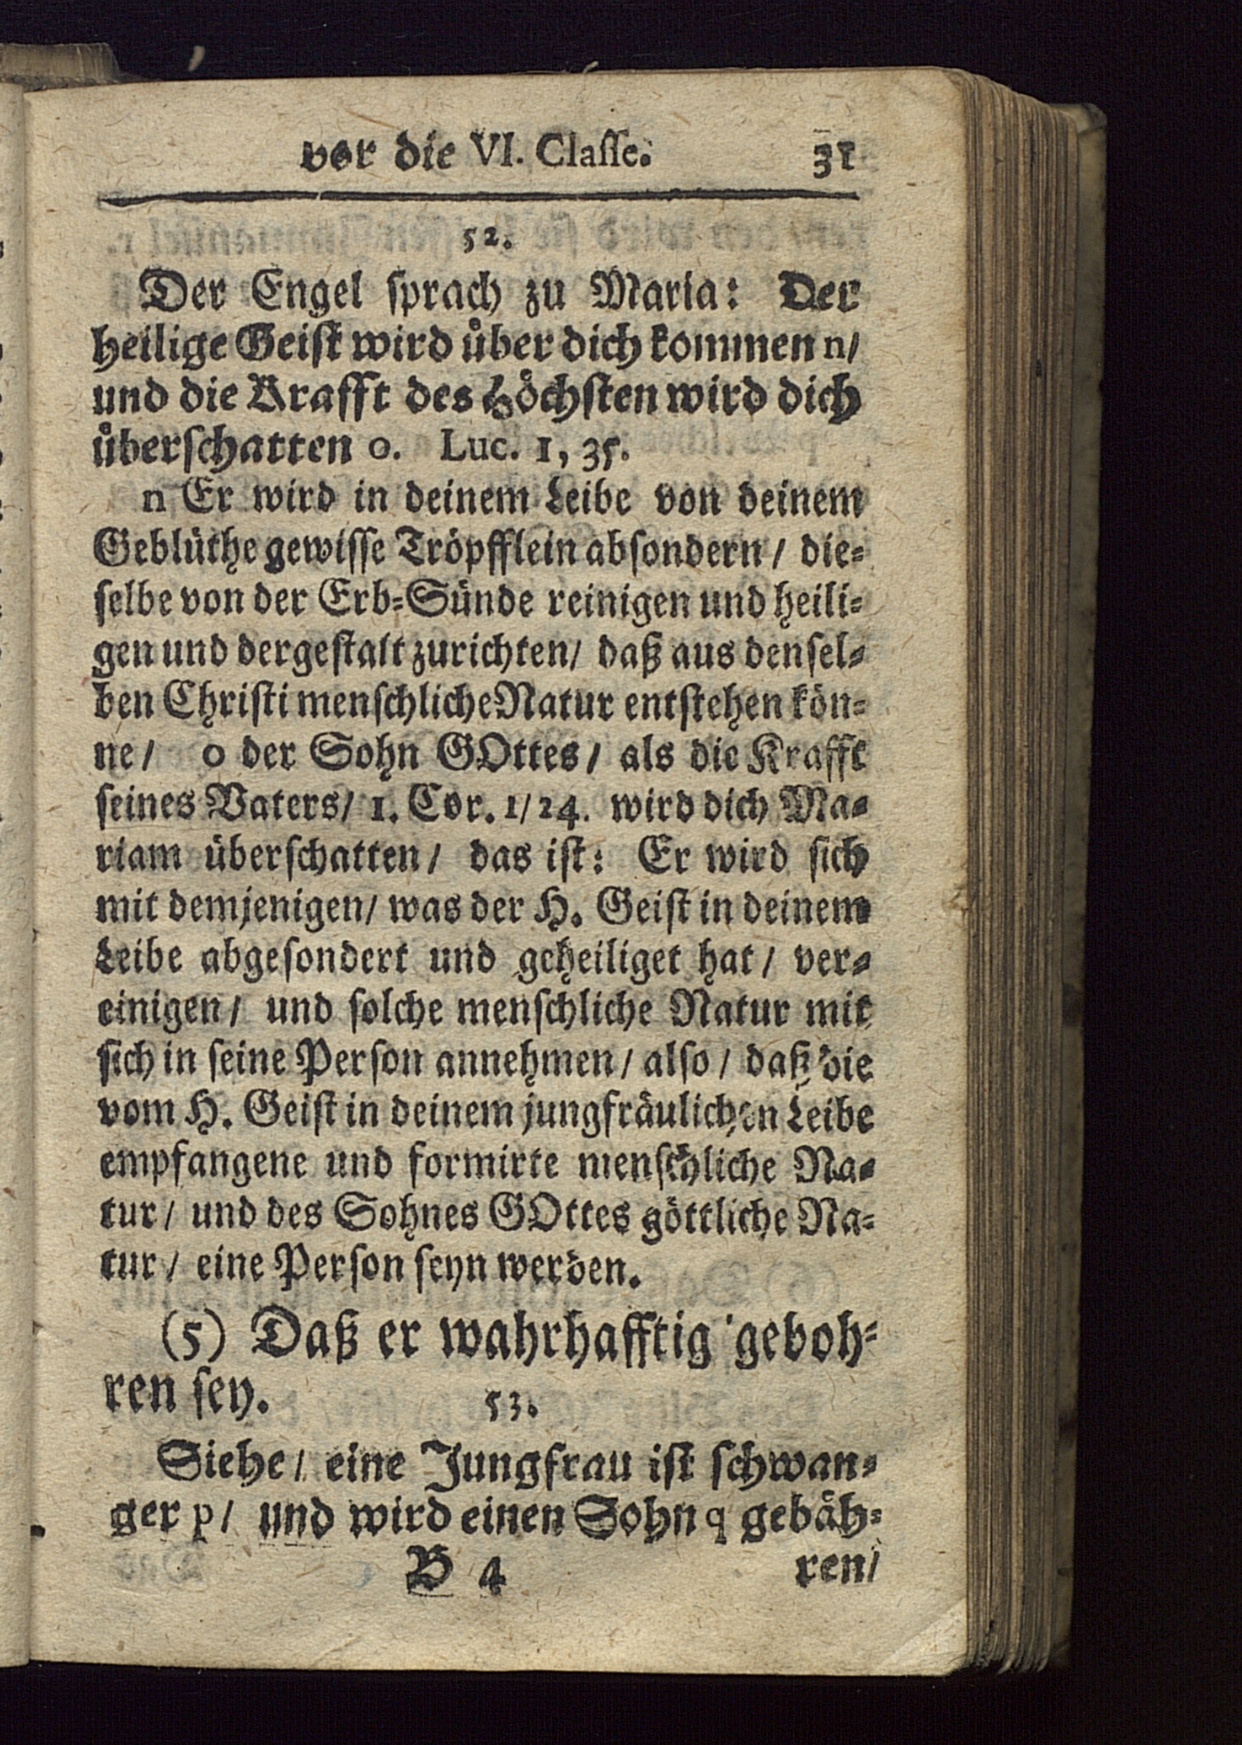 vor die VI. Classe. 31
52.
Der Engel sprach zu Maria: Der
heilige Geist wird über dich kommen n/
und die Krafft des Höchsten wird dich
überschatten o. Luc. 1, 35.
n Er wird in deinem Leibe von deinem
Geblüthe gewisse Tröpfflein absondern / die-
selbe von der Erb-Sünde reinigen und heili-
gen und dergestalt zurichten/ daß aus densel-
ben Christi menschliche Natur entstehen kön-
ne / o der Sohn GOttes / als die Krafft
seines Vaters/ 1. Cor. 1/24. wird dich Ma-
riam überschatten / das ist: Er wird sich
mit demjenigen/ was der H. Geist in deinem
Leibe abgesondert und geheiliget hat / ver-
einigen / und solche menschliche Natur mit
sich in seine Person annehmen / also / daß die
vom H. Geist in deinem jungfräulichen Leibe
empfangene und formirte menschliche Na-
tur / und des Sohnes GOttes göttliche Na-
tur / eine Person seyn werden.
(5) Daß er wahrhafftig geboh-
ren sey. 53.
Siehe / eine Jungfrau ist schwan-
ger p / und wird einen Sohn q gebäh-
B 4 ren/